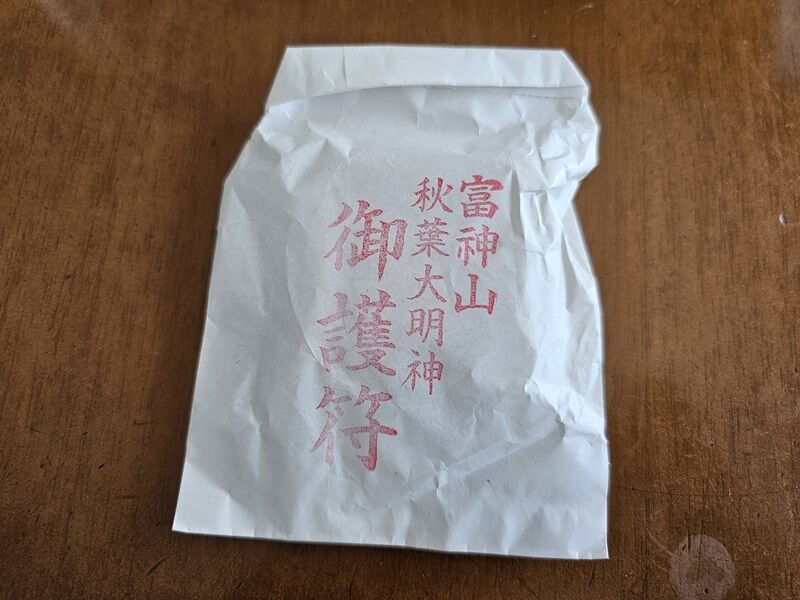 富神山
秋葉大明神
御護符